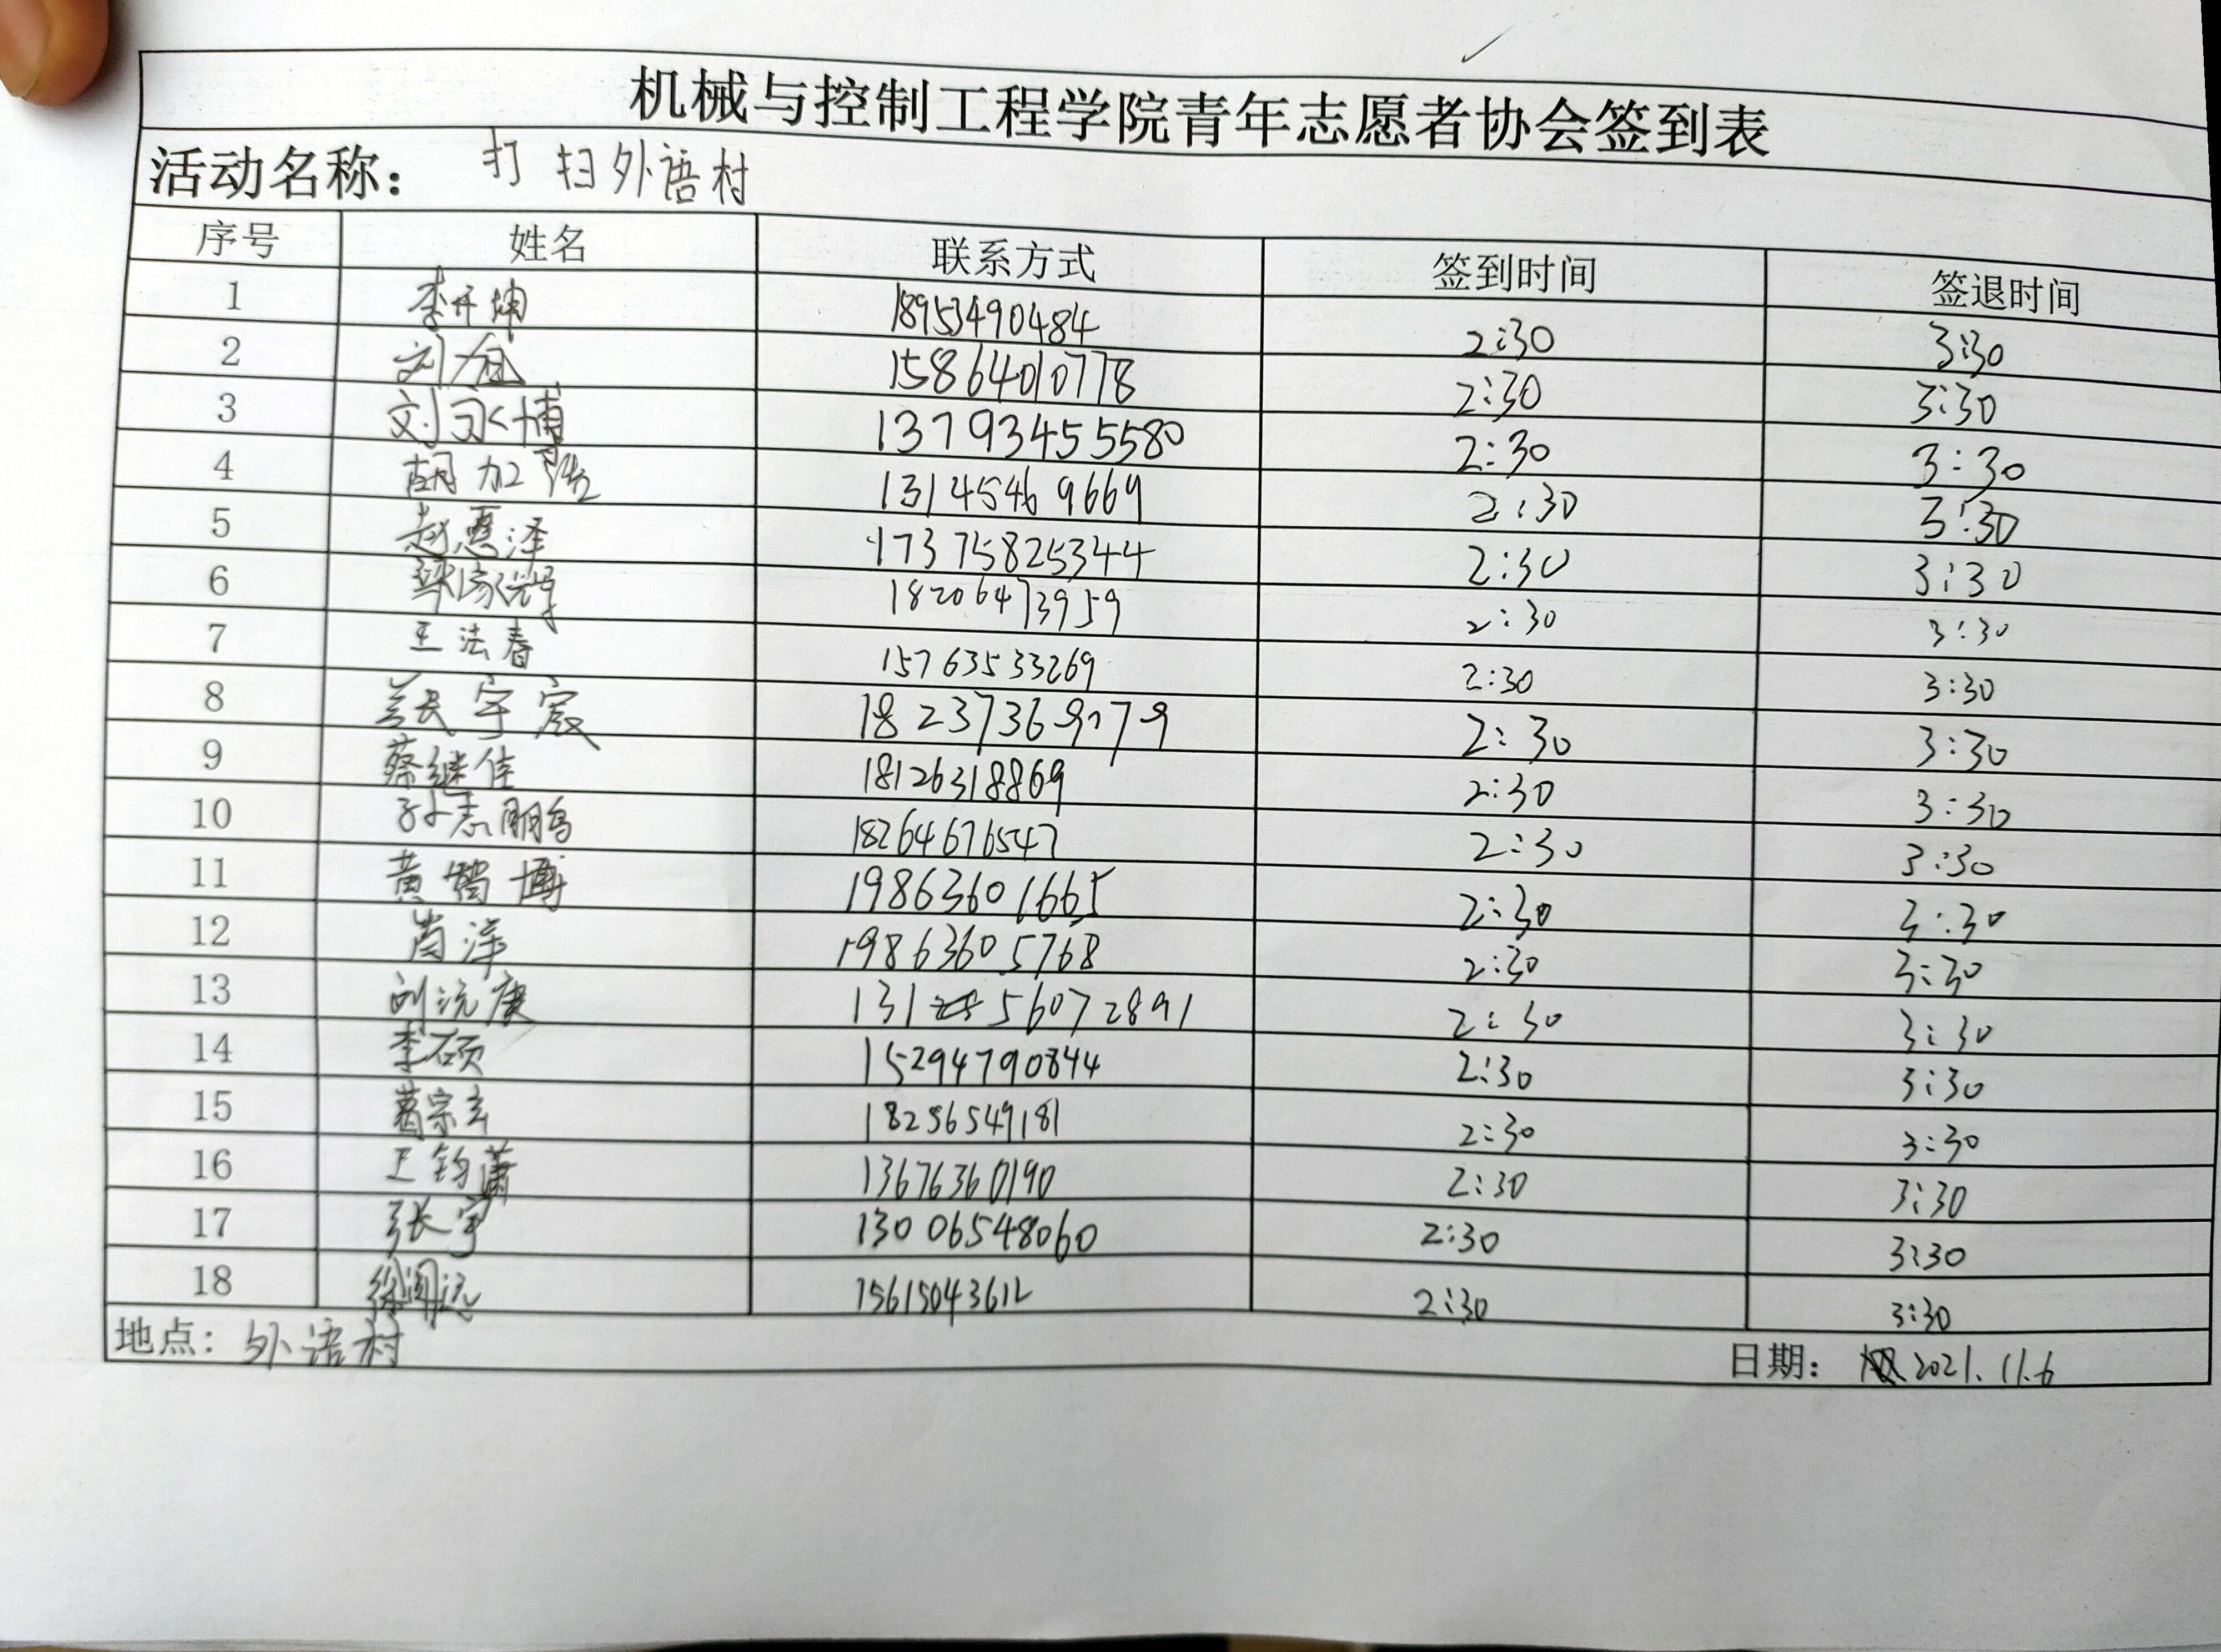 机械与控制工程学院青年志愿者协会签到表
活动名称： 打扫外语村
序号 姓名 联系方式 签到时间 签退时间
1 李开坤 18953490484 2:30 3:30
2 刘 15864010778 2:30 3:30
3 刘永博 13793455580 2:30 3:30
4 胡加 13145469669 2:30 3:30
5 赵惠泽 17375825344 2:30 3:30
6 梁家 18206473959 2:30 3:30
7 王法春 15763533269 2:30 3:30
8 宇宸 2:30 3:30
9 蔡继佳 18126318869 2:30 3:30
10 孙志鹏 18264676547 2:30 3:30
11 黄智博 19863601665 2:30 3:30
12 尚洋 19863605768 2:30 3:30
13 刘沅庚 13156072891 2:30 3:30
14 李硕 15294790844 2:30 3:30
15 葛宗玄 18256549181 2:30 3:30
16 王钧潇 13676360190 2:30 3:30
17 张宇 13006548060 2:30 3:30
18 徐闻远 15615043612 2:30 3:30
地点： 外语村 日期： 2021.11.6